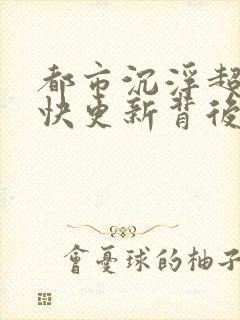 都市沉浮超
快更新背後
會憂球的柚子